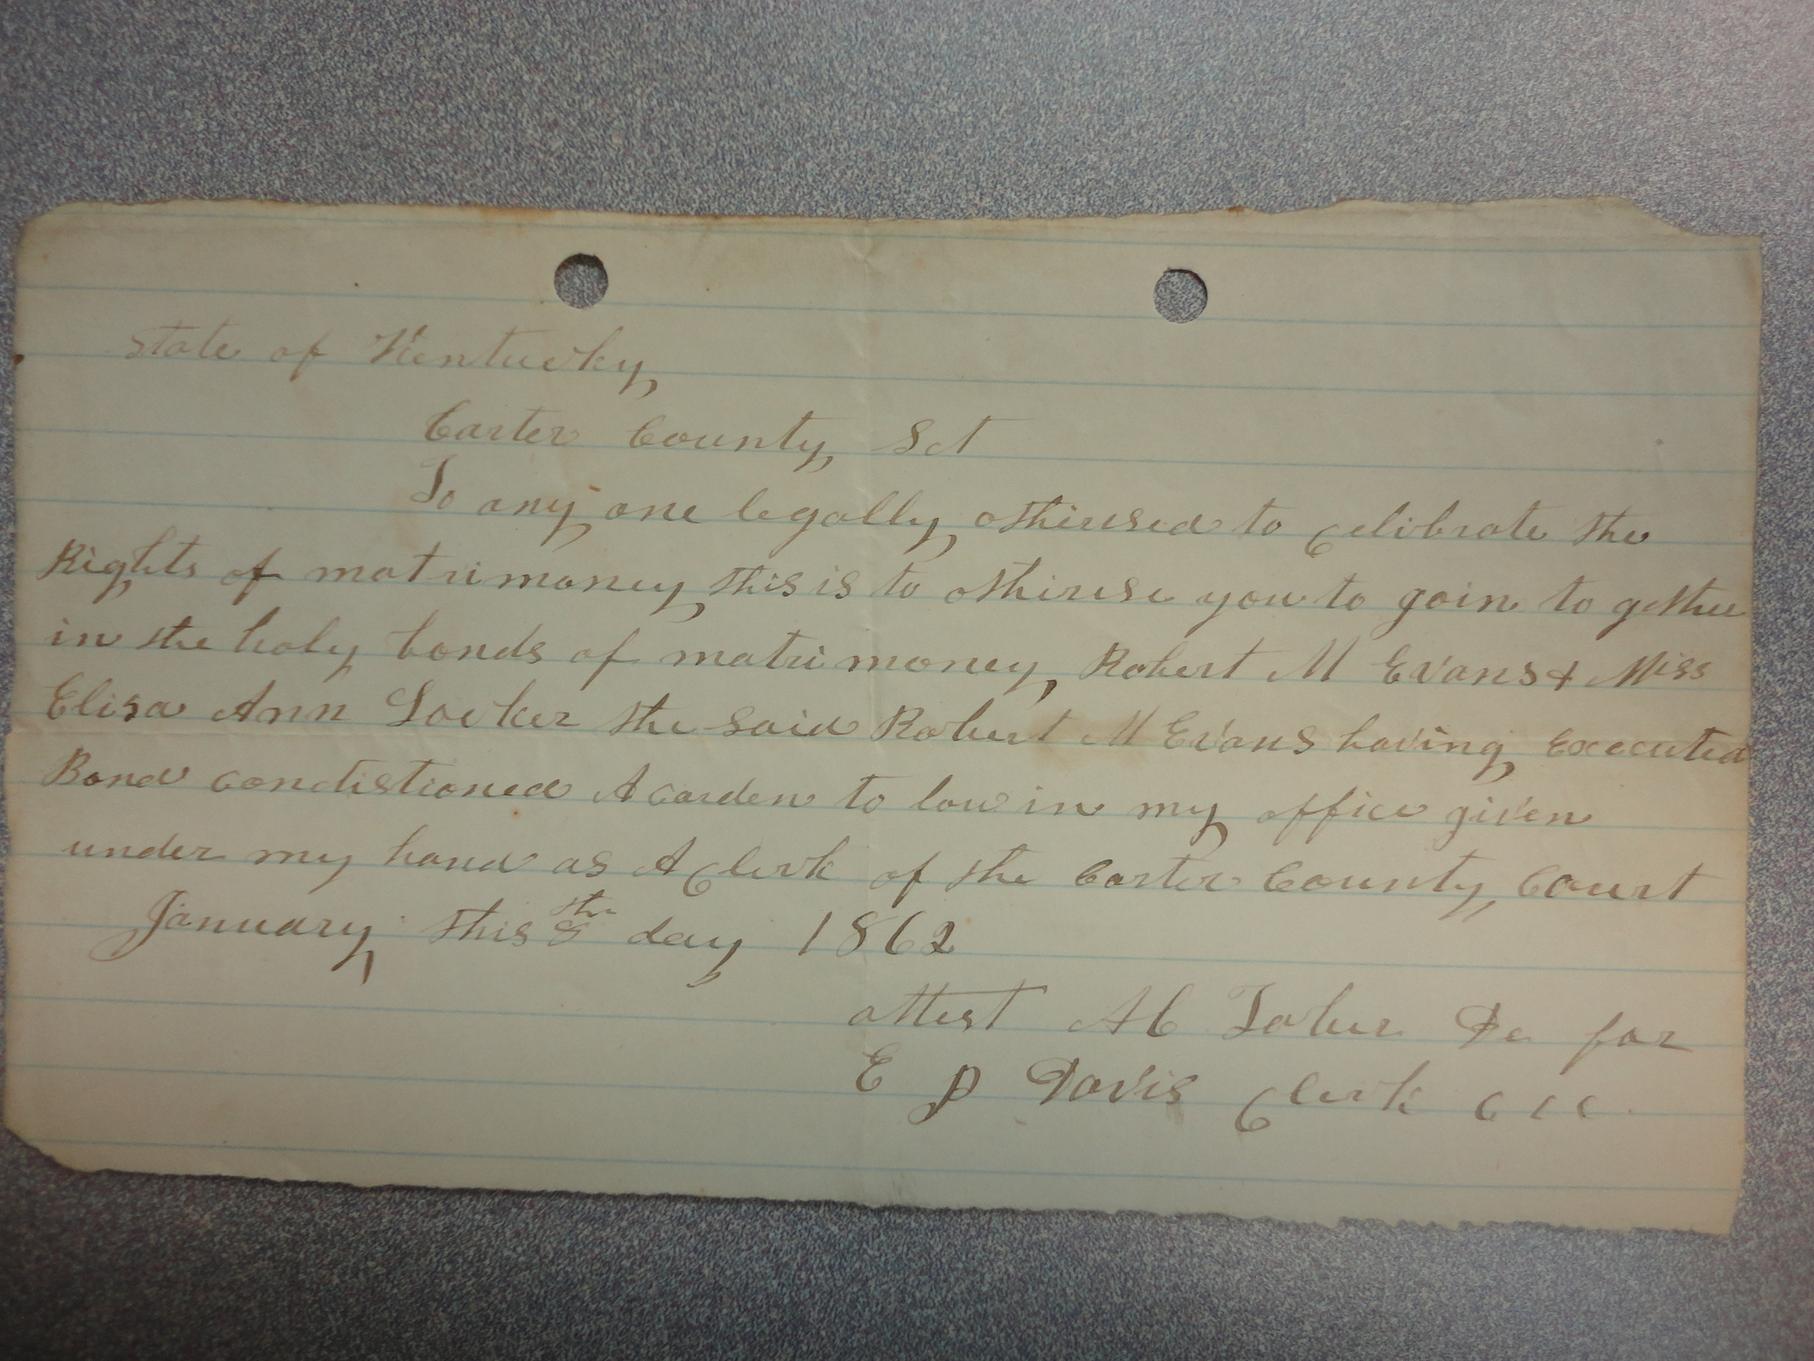 State of Kentucky,
Carter County, Sct
To any one legally othirised to Celibrate the
Rights of matrimoney this is to othirise you to goin to gether
in the holy bonds of matrimoney, Robert M Evans & Miss
Elisa Ann Locker the said Robert M Evans having Executed
Bond condistioned Acorden to low in my office given
under my hand as A Clerk of the Carter County, Court
January this 8th day 1862
attest A C for
E D Davis Clerk C C C